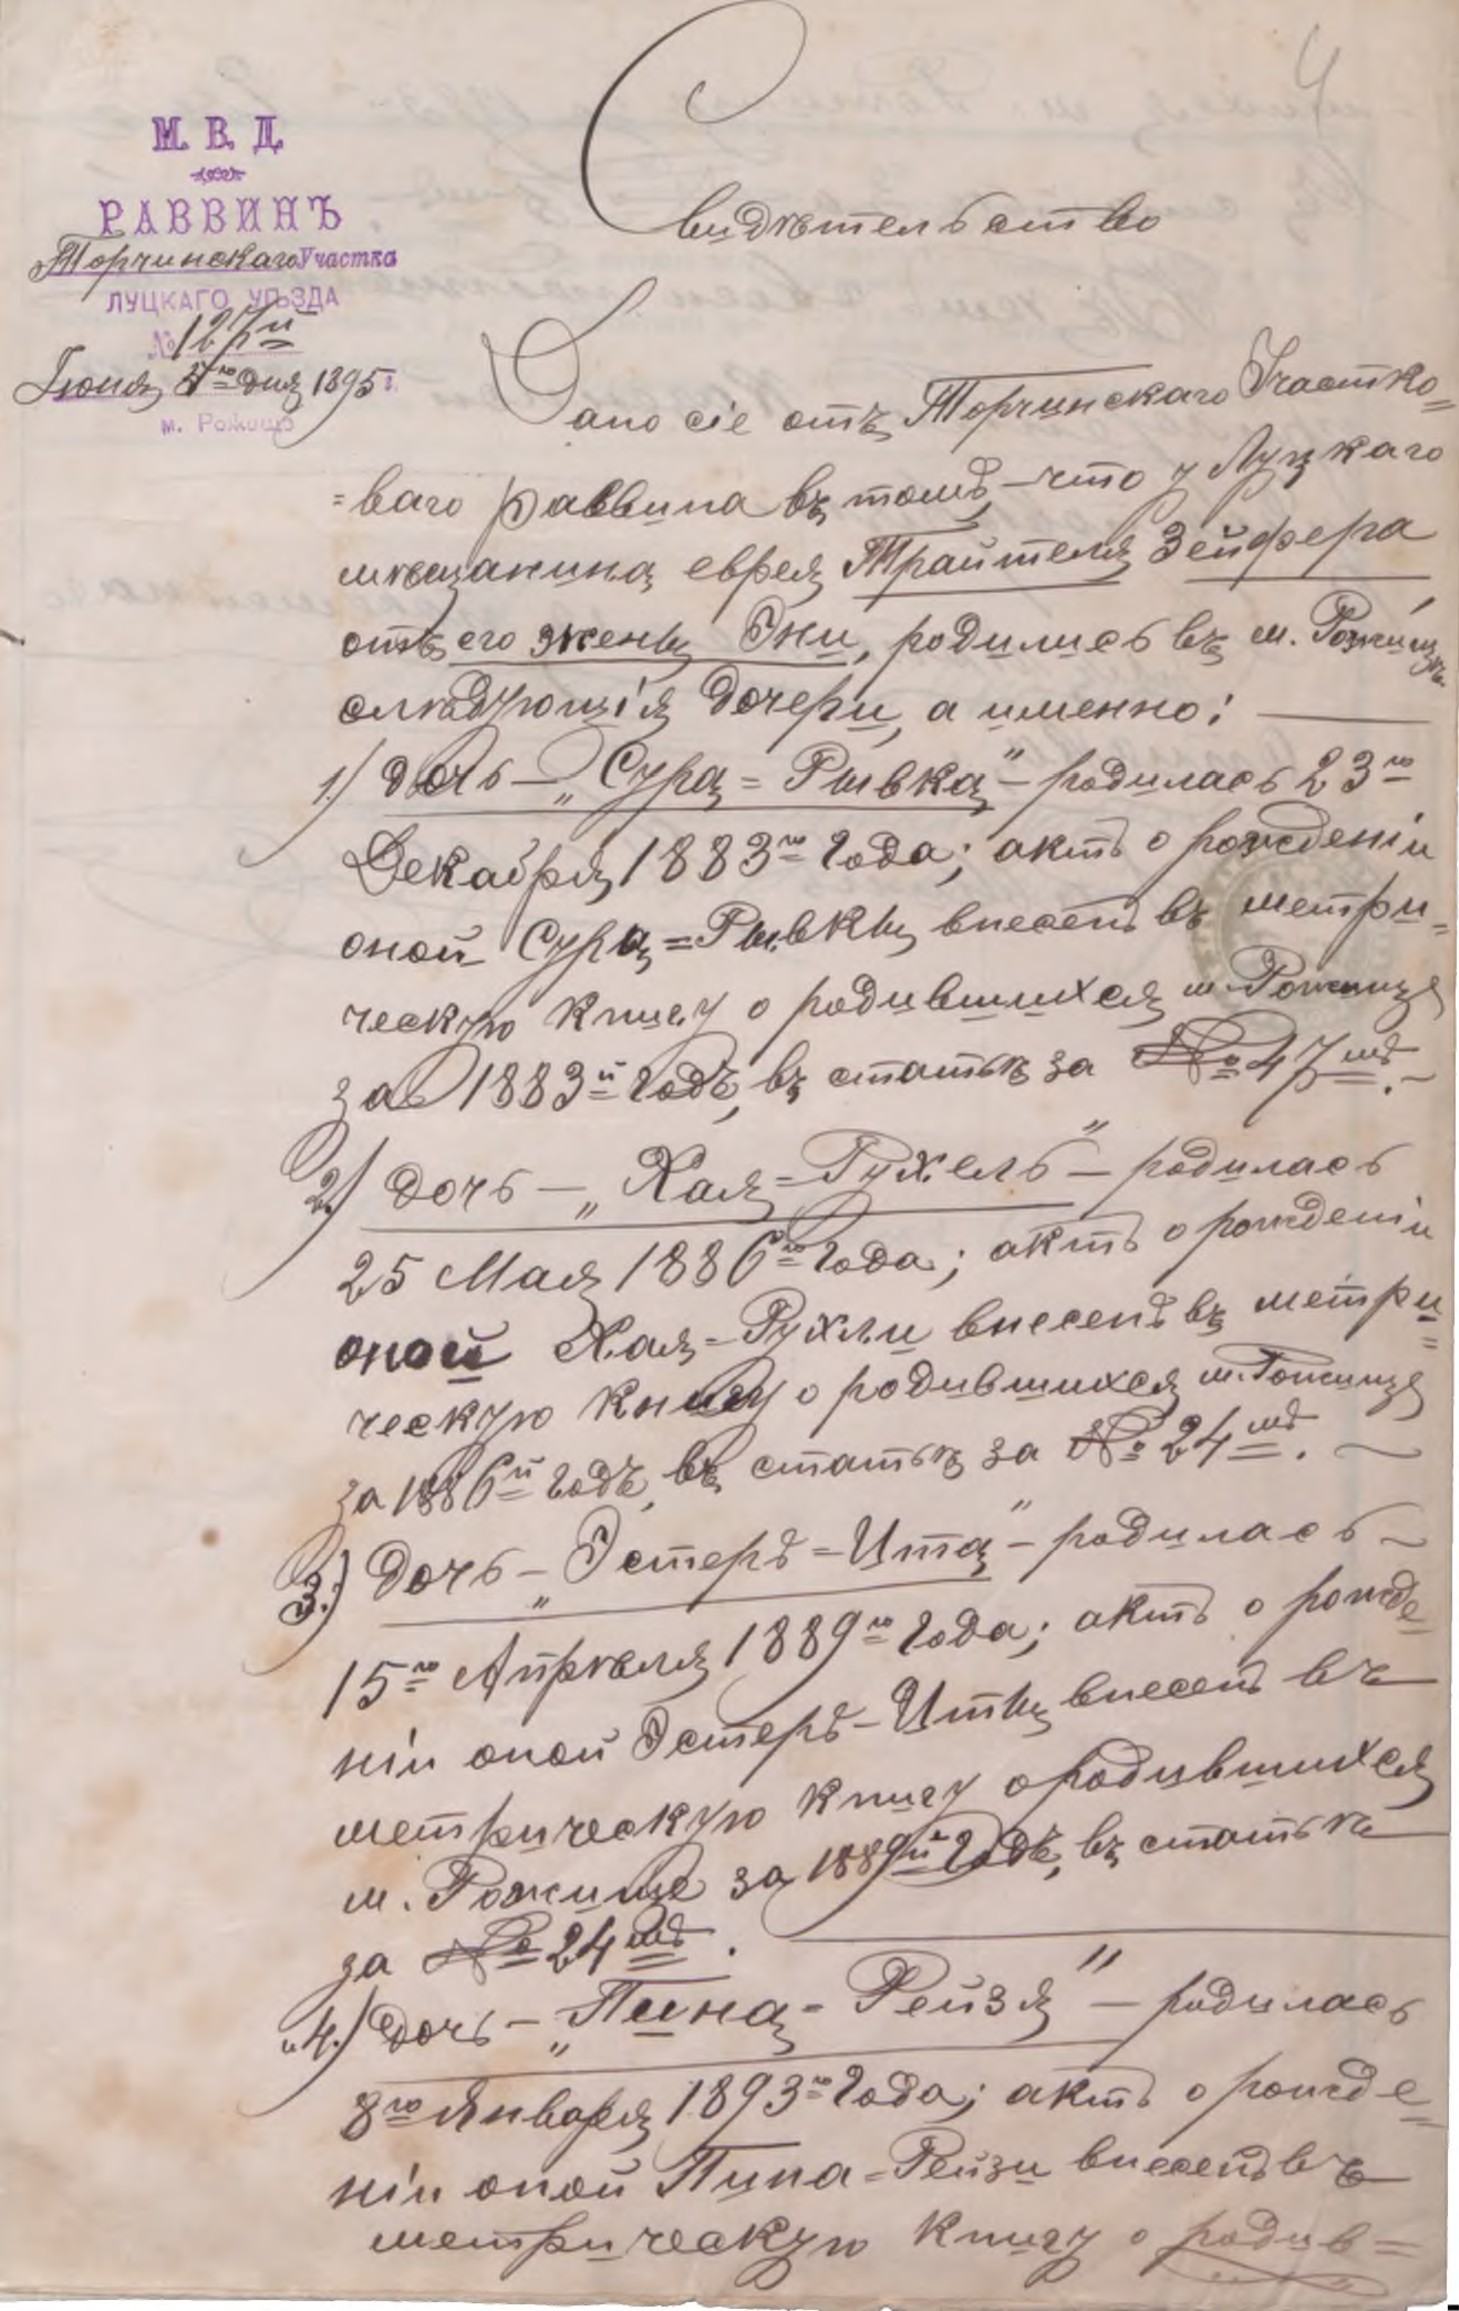 4
М. В. Д.
РАВВИНЪ
Торчинскаго Участка
ЛУЦКАГО УѢЗДА
№ 127й
Іюня 5го дня 1895 г.
м. Рожище
Свидѣтельство
Дано сіе отъ Торчинскаго Участко=
=ваго раввина въ томъ, что у Луцкаго
мѣщанина еврея Трайтеля Зейфера
отъ его жены Эни, родились въ м. Рожищѣ
слѣдующія дочери, а именно:
1.) дочь – „Сура=Рывка" – родилась 23го
Декабря 1883го года; актъ о рожденіи
оной Сура=Рывки внесенъ въ метри=
ческую книгу о родившихся м. Рожище
за 1883й годъ, въ статьѣ за № 47мъ. –
2.) дочь – „Хая=Рухель" – родилась
25 Мая 1886го года; актъ о рожденіи
оной Хая=Рухли внесенъ въ метри=
ческую книгу о родившихся м. Рожище
за 1886й годъ, въ статьѣ за № 24мъ. –
3.) дочь – „Эстеръ=Ита" – родилась –
15го Апрѣля 1889го года; актъ о рожде=
ніи оной Эстеръ–Иты внесенъ въ
метрическую книгу о родившихся
м. Рожище за 1889й годъ, въ статьѣ
за № 24мъ.
и 4.) дочь – „Пина=Рейзя" – родилась
8го Января 1893го года; актъ о рожде=
ніи оной Пина=Рейзи внесенъ въ
метрическую книгу о родив=